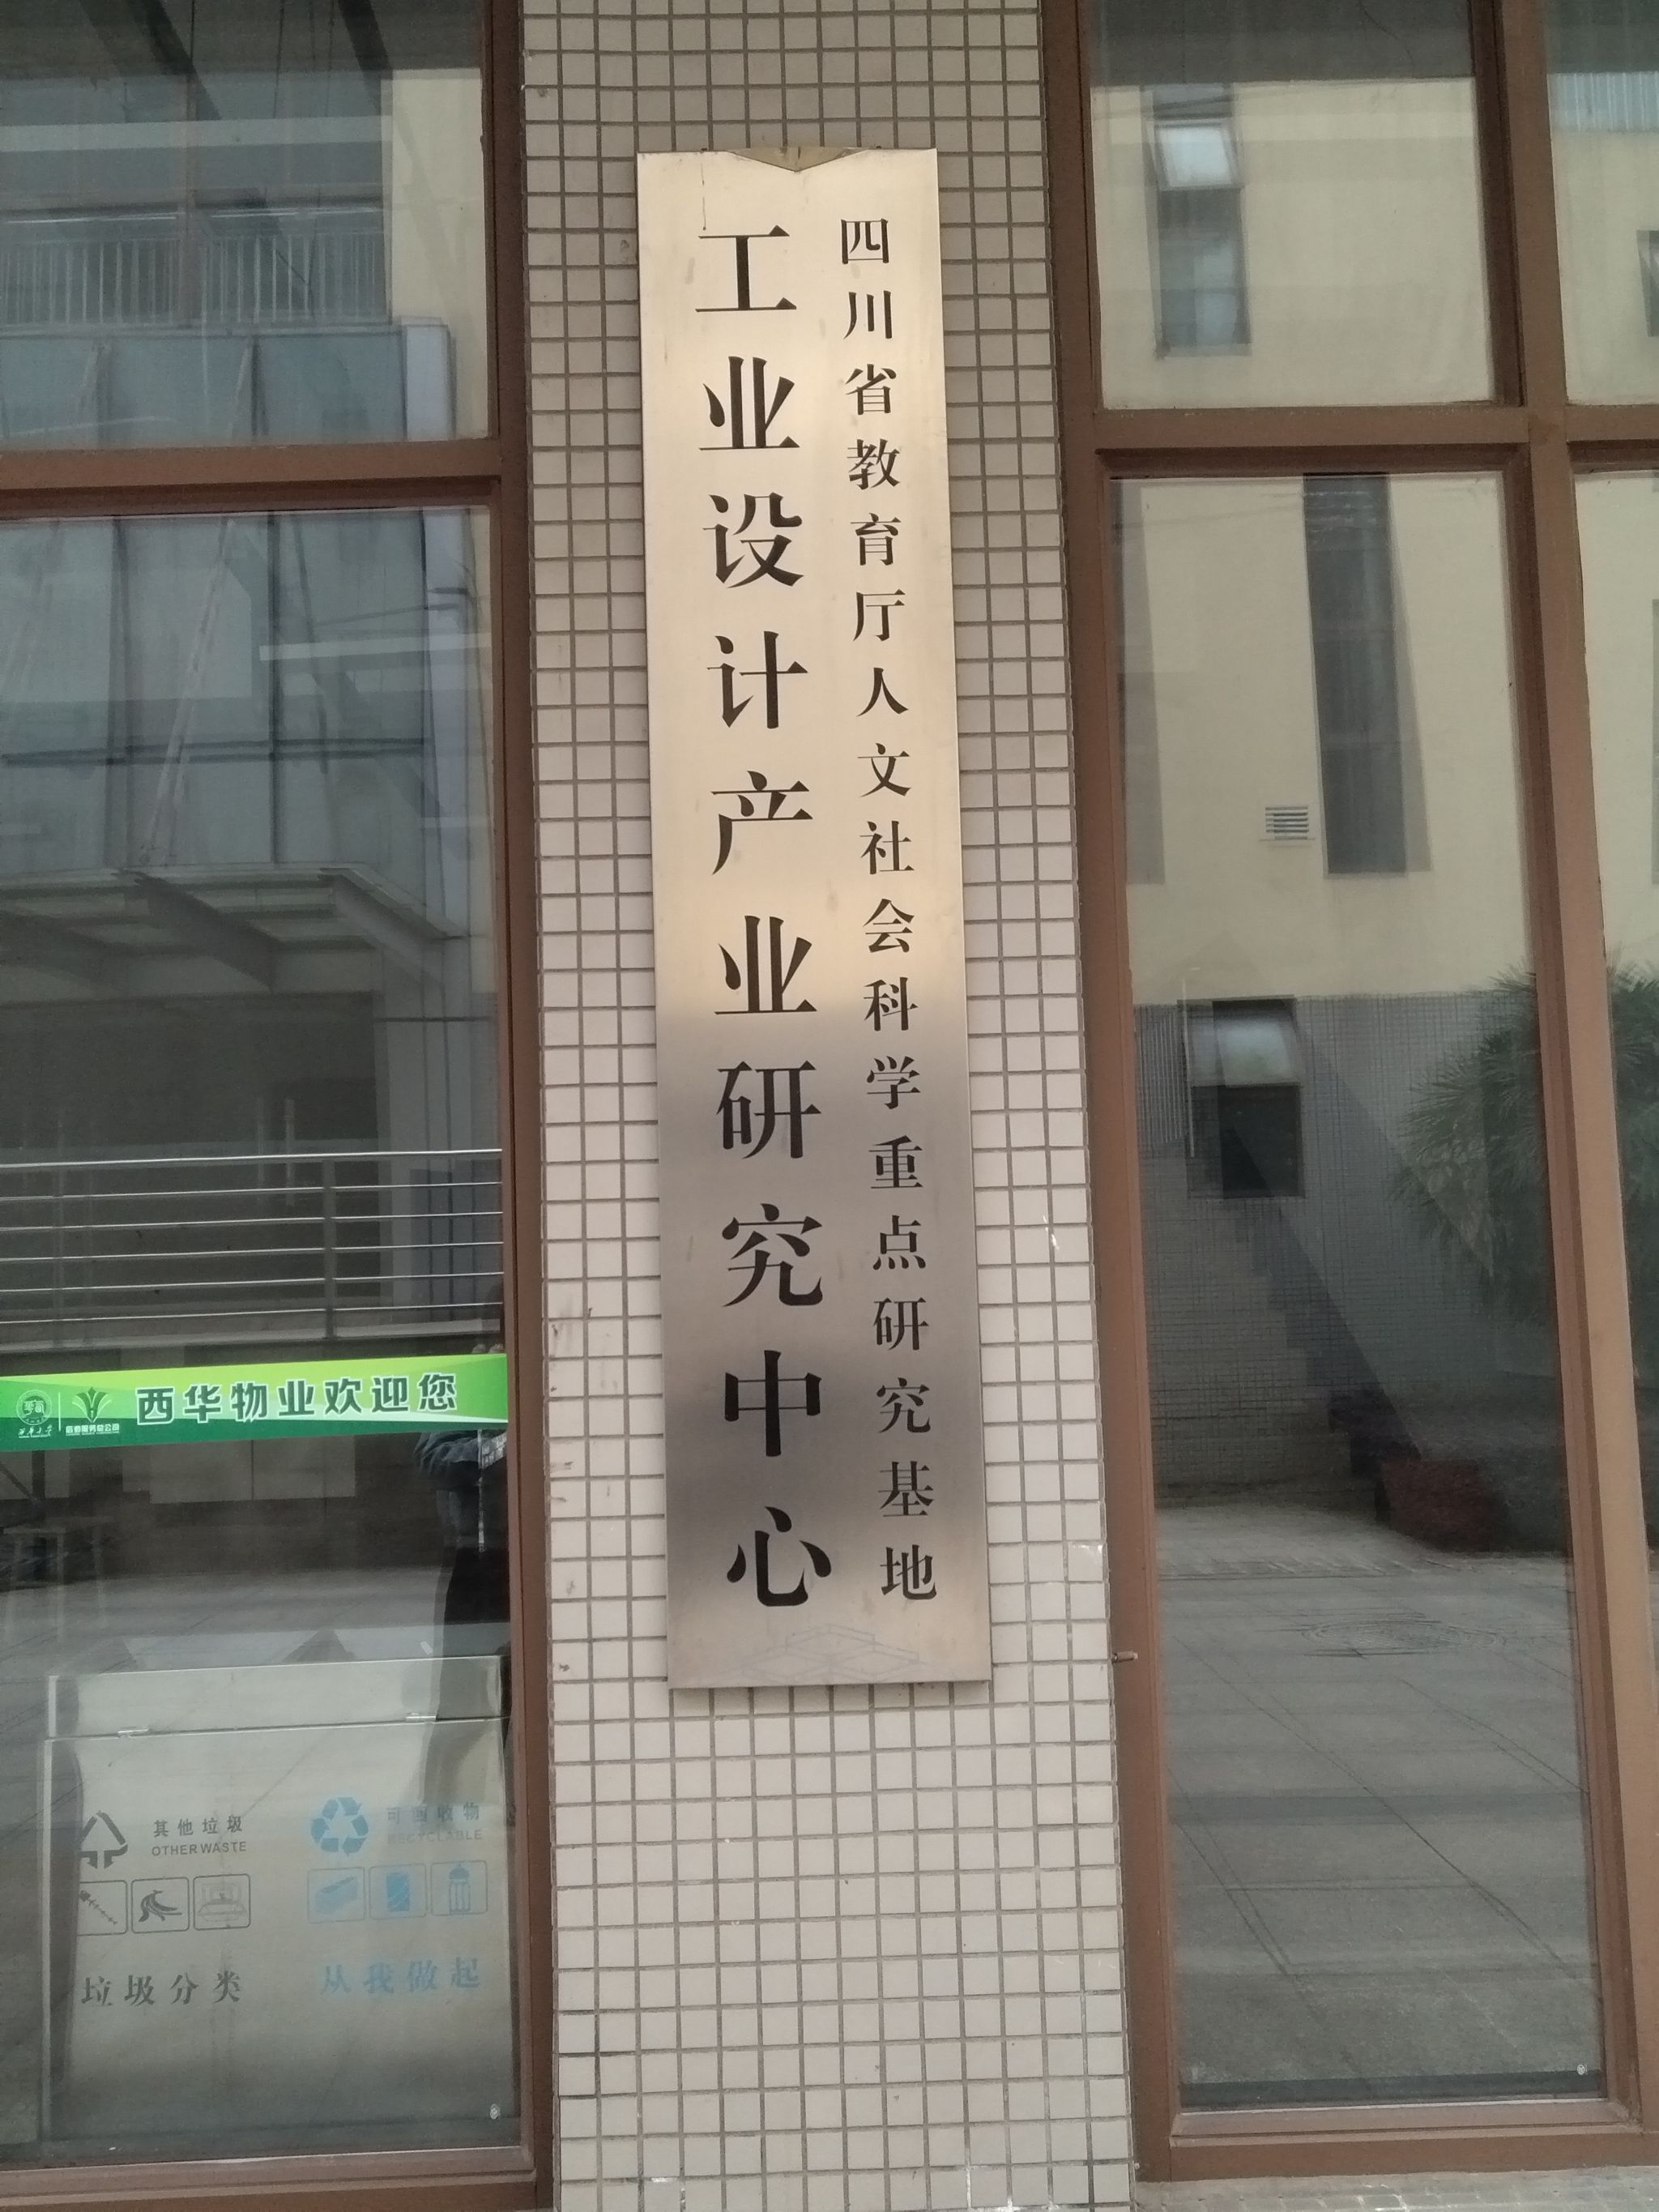 四川省教育厅人文社会科学重点研究基地
工业设计产业研究中心
西华物业欢迎您
西华大学
后勤服务总公司
其他垃圾
OTHER WASTE
可回收物
RECYCLABLE
垃圾分类
从我做起